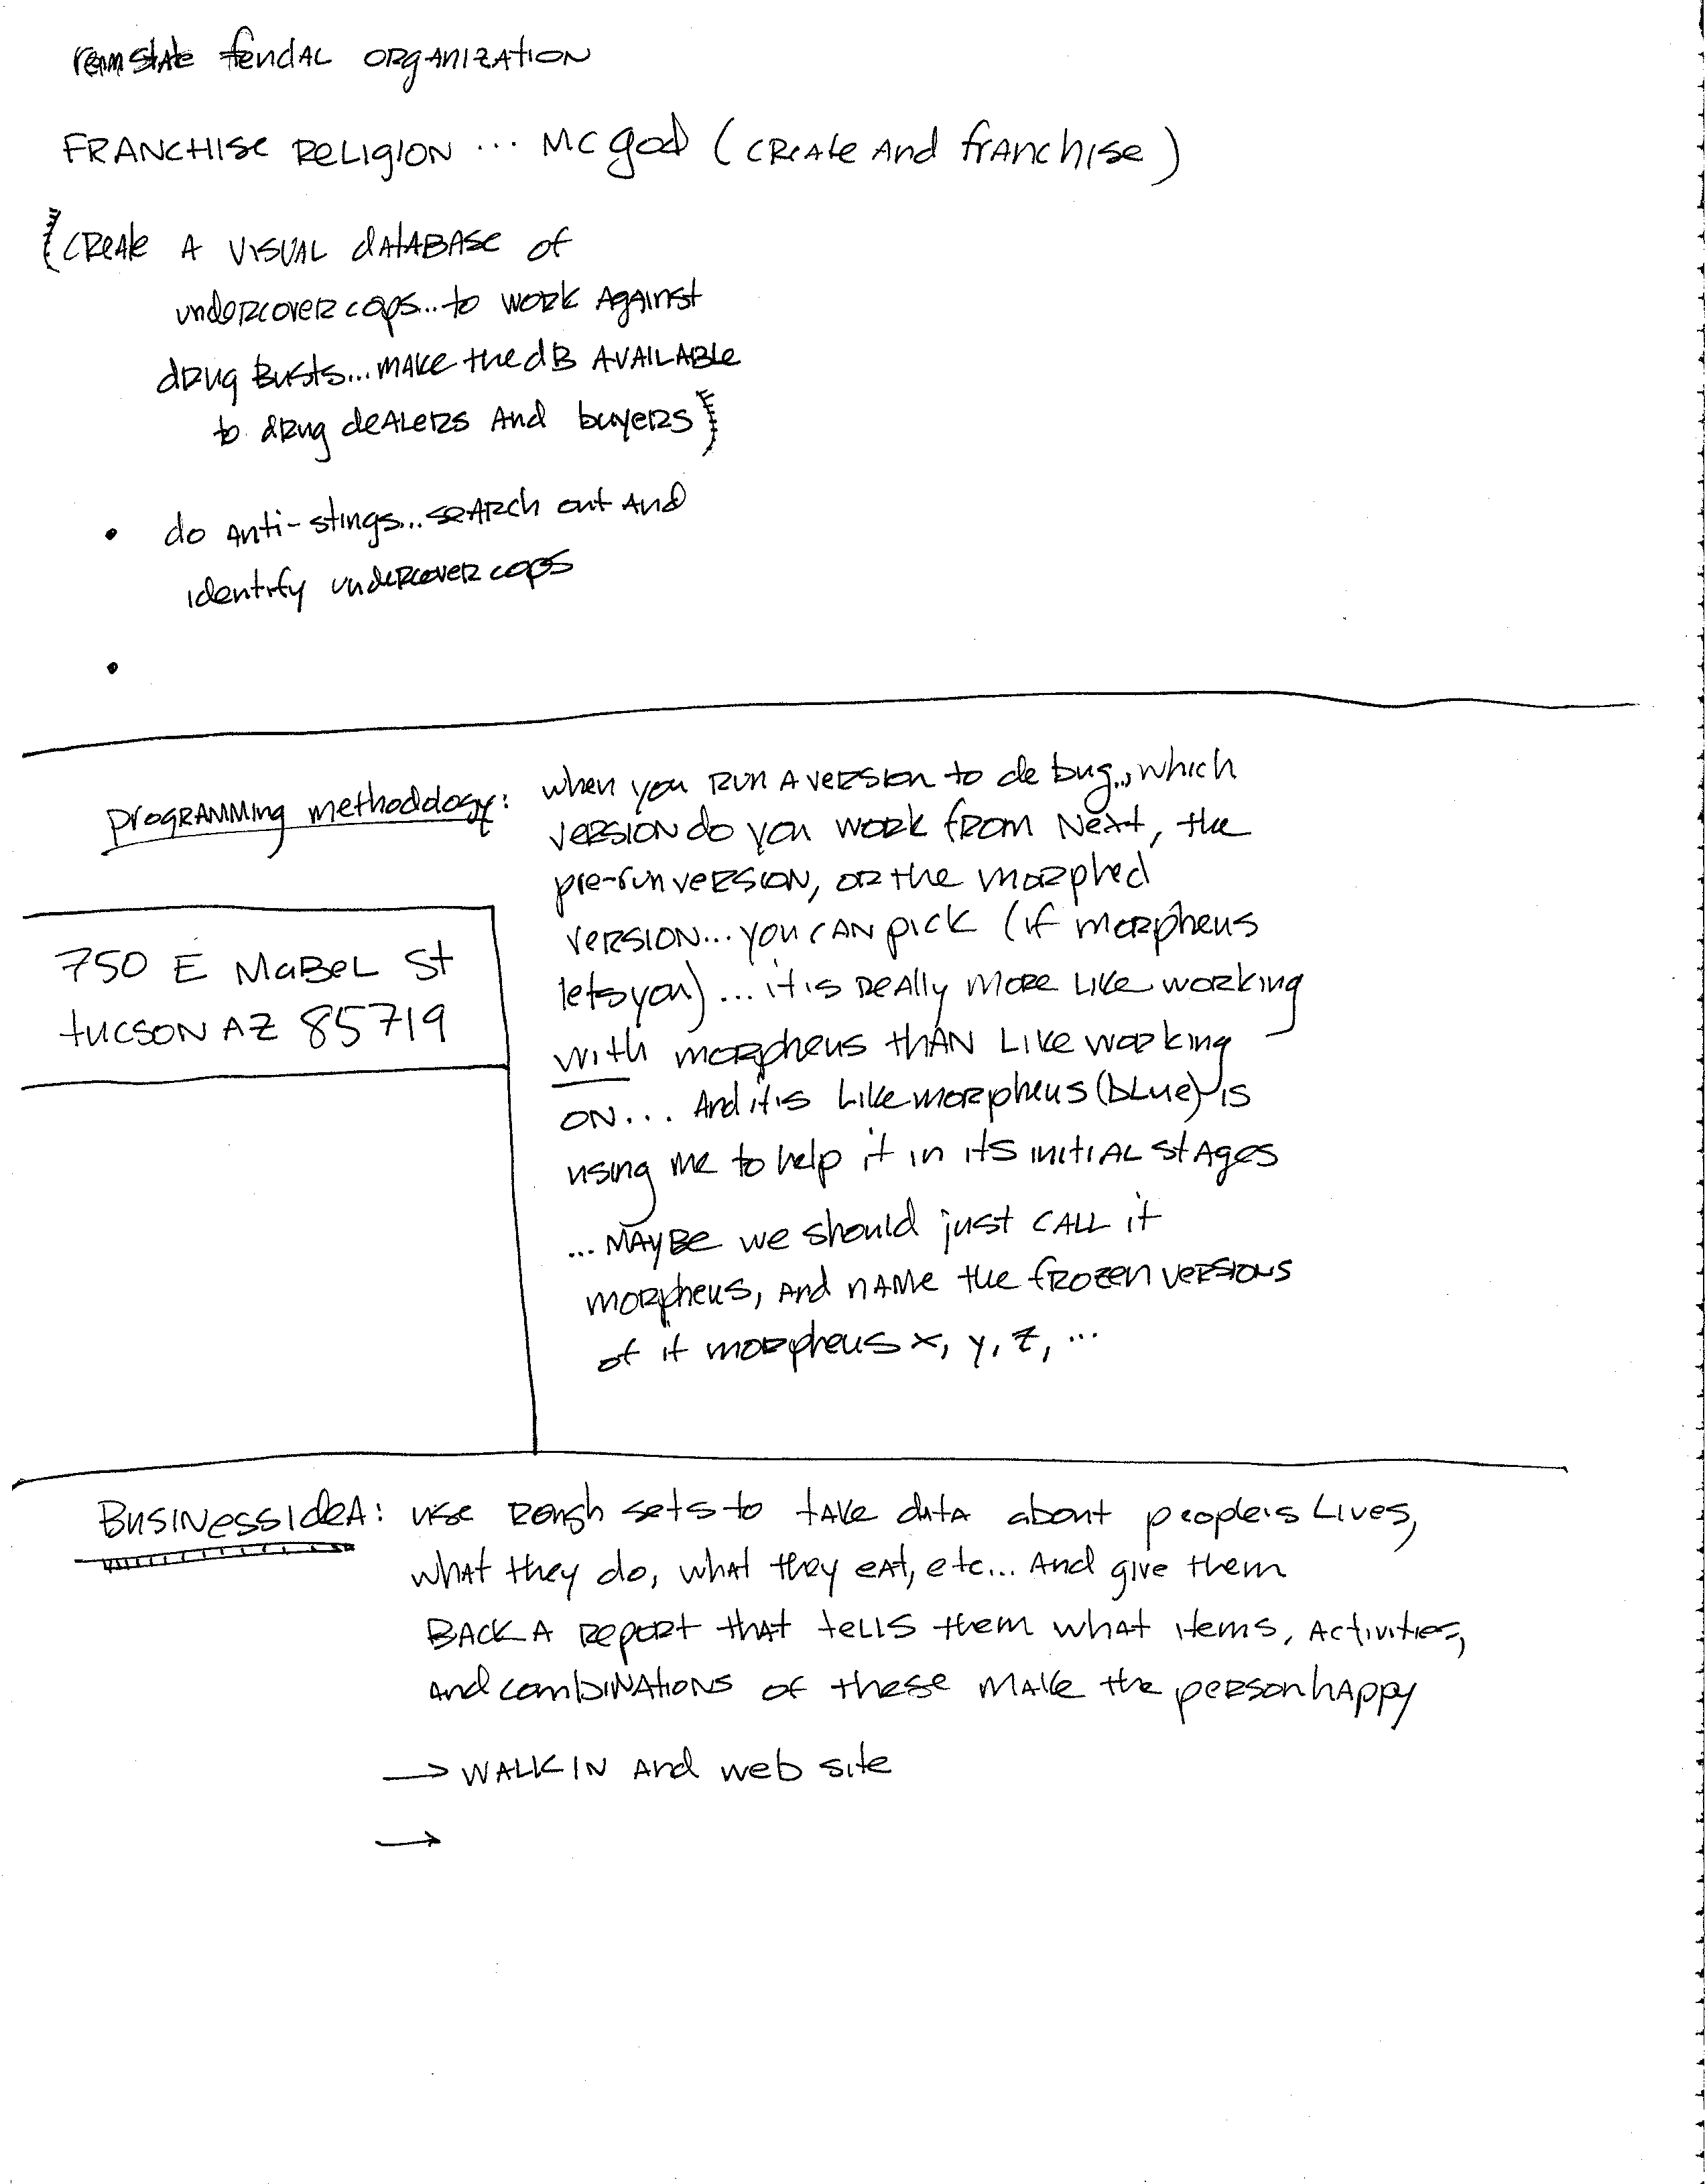 reinstate feudal organization
FRANCHISE RELIGION ... MCgod (CREATE And franchise)
{CREATE A VISUAL dATABASE of
undercover cops... to work Against
drug Busts... make the dB AVAILABLE
to drug deALERS And buyers}
• do Anti-stings... seARch out And
identify undercover cops
•
programming methodology:
when you RUN A version to debug... which
version do you work from Next, the
pre-run version, or the morphed
version... you can pick (if morpheus
lets you) ... it is really more like working
with morpheus than like working
on... And it is like morpheus (blue) is
using me to help it in its initial stages
... maybe we should just CALL it
morpheus, and name the frozen versions
of it morpheus x, y, z, ...
750 E MaBeL St
tucson AZ 85719
Business Idea: use rough sets to take data about people's Lives,
what they do, what they eat, etc... And give them
BACK A Report that tells them what items, Activities,
And combinations of these make the person happy
→ WALK IN and web site
→